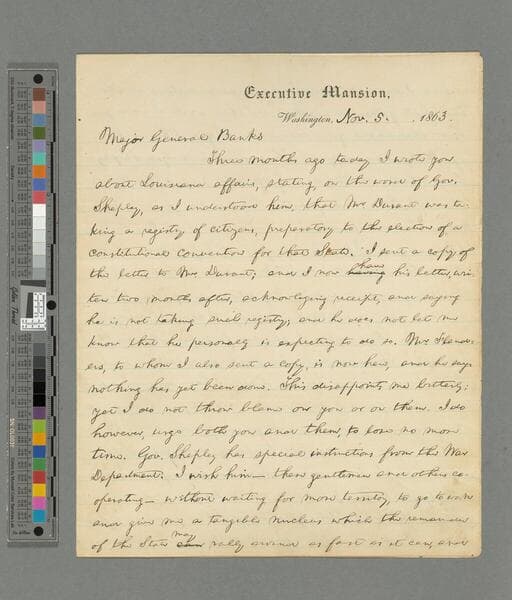 Executive Mansion,
Washington, Nov. 5. , 1863.
Major General Banks
Three months ago to-day I wrote you
about Louisiana affairs, stating, on the word of Gov.
Shepley, as I understood him, that Mr. Durant was ta-
king a registry of citizens, preparatory to the election of a
constitutional convention for that State. I sent a copy of
the letter to Mr. Durant; and I now have
having his letter, writ-
ten two months after, acknowledging receipt, and saying
he is not taking such registry; and he does not let me
know that he personally is expecting to do so. Mr. Fland-
ers, to whom I also sent a copy, is now here, and he says
nothing has yet been done. This disappoints me bitterly;
yet I do not throw blame on you or on them. I do
however, urge both you and them, to lose no more
time. Gov. Shepley has special instructions from the War
Department. I wish him— these gentlemen and others co-
operating— without waiting for more territory, to go to work
and give me a tangible nucleus which the remainder
of the State may rally around as fast as it can, and